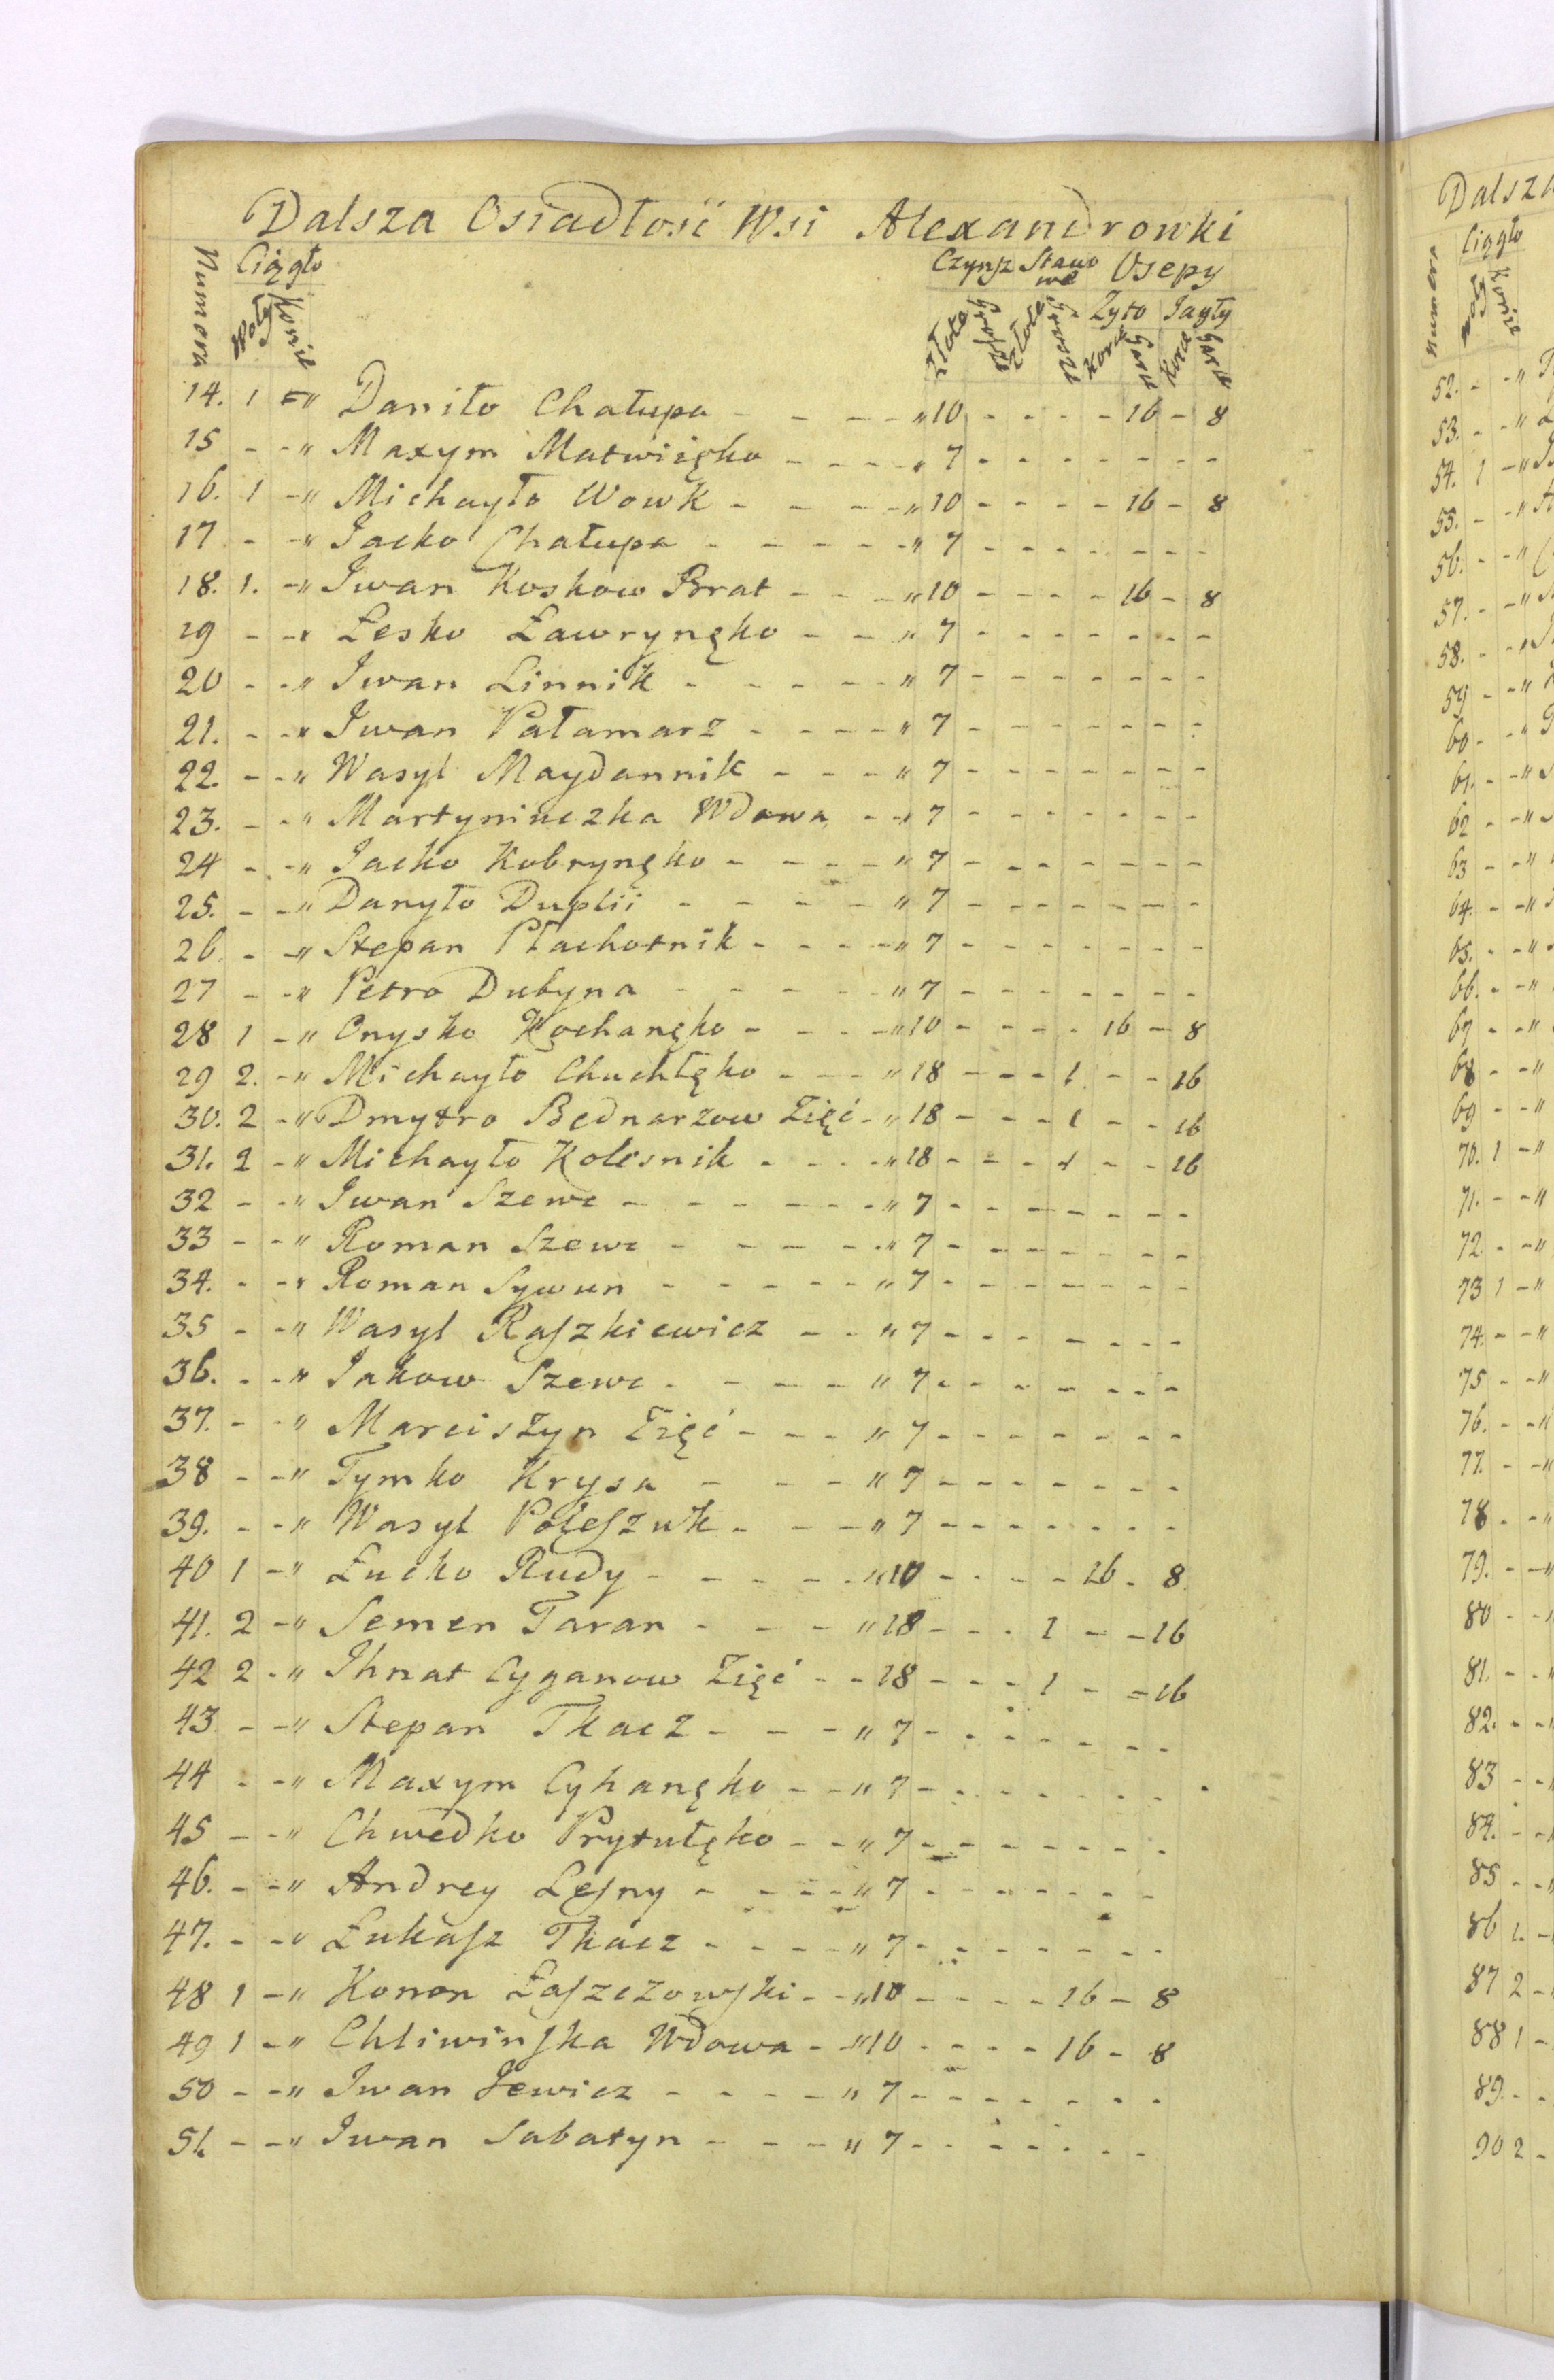 Dalsza Osiadłość Wsi Alexandrowki
Numera Ciągło Czynsz Stawo we Osepy
Woły Konie Złote Grosze Złote Grosze Żyto Jagły
Korce Garce Korce Garce
14. 1 - " Daniło Chałupa - - - - " 10 - - - - 16 - 8
15 - - " Maxym Matwięko - - - - " 7 - - - - - - -
16. 1 - " Michayło Wowk - - - - " 10 - - - - 16 - 8
17 - - " Jacko Chałupa - - - - - " 7 - - - - - - -
18. 1. - " Iwan Koskow Brat - - - " 10 - - - - 16 - 8
19 - - " Łesko Ławrynęko - - " 7 - - - - - - -
20 - - " Iwan Linnik - - - - - " 7 - - - - - - -
21. - - " Iwan Pałamarz - - - - " 7 - - - - - - -
22. - - " Wasyl Maydannik - - - " 7 - - - - - - -
23. - - " Martyniuczka Wdowa - " 7 - - - - - - -
24 - - " Jacko Kobrynęko - - - - " 7 - - - - - - -
25. - - " Danyło Duplii - - - - " 7 - - - - - - -
26. - - " Stepan Płachotnik - - - - " 7 - - - - - - -
27 - - " Petro Dubyna - - - - - " 7 - - - - - - -
28 1 - " Onysko Kochanęko - - - - " 10 - - - - 16 - 8
29 2. - " Michayło Chuchłęko - - - " 18 - - - 1 - - 16
30. 2 - " Dmytro Bednarzow Zięć - " 18 - - - 1 - - 16
31. 2 - " Michayło Kolesnik - - - - " 18 - - - 1 - - 16
32 - - " Iwan Szewc - - - - - - " 7 - - - - - - -
33 - - " Roman Szewc - - - - - " 7 - - - - - - -
34. - - " Roman Sywun - - - - - " 7 - - - - - - -
35 - - " Wasyl Raszkiewicz - - " 7 - - - - - - -
36. - - " Jakow Szewc - - - - " 7 - - - - - - -
37. - - " Marciszyn Zięć - - - " 7 - - - - - - -
38 - - " Tymko Krysa - - - " 7 - - - - - - -
39. - - " Wasyl Poleszuk - - - " 7 - - - - - - -
40 1 - " Łucko Rudy - - - - - " 10 - - - - 16 - 8
41. 2 - " Semen Taran - - - " 18 - - - 1 - - 16
42 2 - " Ihnat Cyganow Zięć - - 18 - - - 1 - - 16
43. - - " Stepan Tkacz - - - " 7 - - - - - - -
44 - - " Maxym Cyhanęko - - " 7 - - - - - - -
45 - - " Chwedko Prytułęko - - " 7 - - - - - - -
46. - - " Andrey Leśny - - - - " 7 - - - - - - -
47. - - " Łukasz Tkacz - - - - " 7 - - - - - - -
48 1 - " Konon Łaszczowski - - " 10 - - - - 16 - 8
49 1 - " Chliwinska Wdowa - " 10 - - - - 16 - 8
50 - - " Iwan Jewicz - - - - " 7 - - - - - - -
51. - - " Iwan Sabatyn - - - " 7 - - - - - - -
Dalsza
Ciągło
Konie
52. - - "
53. - - "
54. 1 - "
55. - - "
56. - - "
57. - - "
58. - - "
59 - - "
60 - - "
61. - - "
62 - - "
63 - - "
64. - - "
65. - - "
66. - - "
67 - - "
68 - - "
69 - - "
70. 1 - "
71. - - "
72. - - "
73 1 - "
74. - - "
75 - - "
76. - - "
77. - - "
78 - - "
79. - - "
80 - -
81. - - "
82. - -
83 - - "
84. - -
85 - - "
86 1. -
87 2 -
88 1 -
89. - -
90 2 -